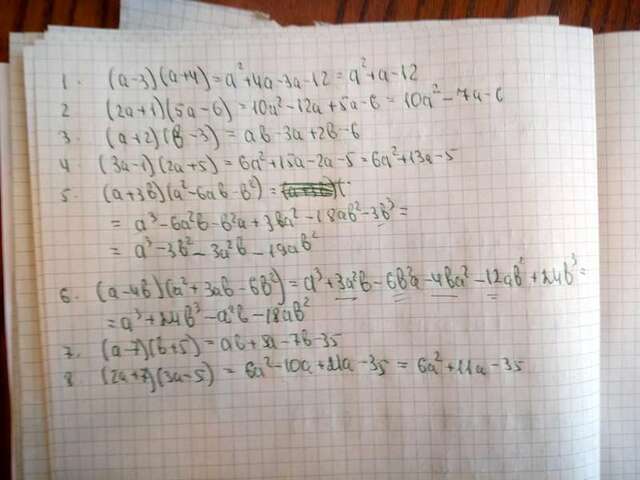 1. (a-3)(a+4)=a²+4a-3a-12=a²+a-12
2 (2a+1)(5a-6)=10a²-12a+5a-6=10a²-7a-6
3. (a+2)(b-3)=ab-3a+2b-6
4 (3a-1)(2a+5)=6a²+15a-2a-5=6a²+13a-5
5. (a+3b)(a²-6ab-b²)=
=a³-6a²b-b²a+3ba²-18ab²-3b³=
=a³-3b³-3a²b-19ab²
6. (a-4b)(a²+3ab-6b²)=a³+3a²b-6b²a-4ba²-12ab²+24b³=
=a³+24b³-a²b-18ab²
7. (a-7)(b+5)=ab+5a-7b-35
8 (2a+7)(3a-5)=6a²-10a+21a-35=6a²+11a-35